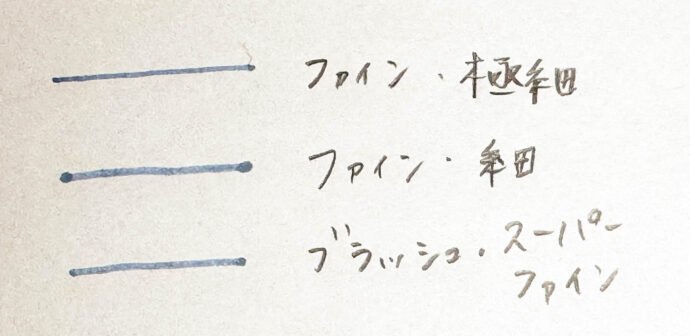 ファイン・極細
ファイン・細
ブラッシュ・スーパー
ファイン